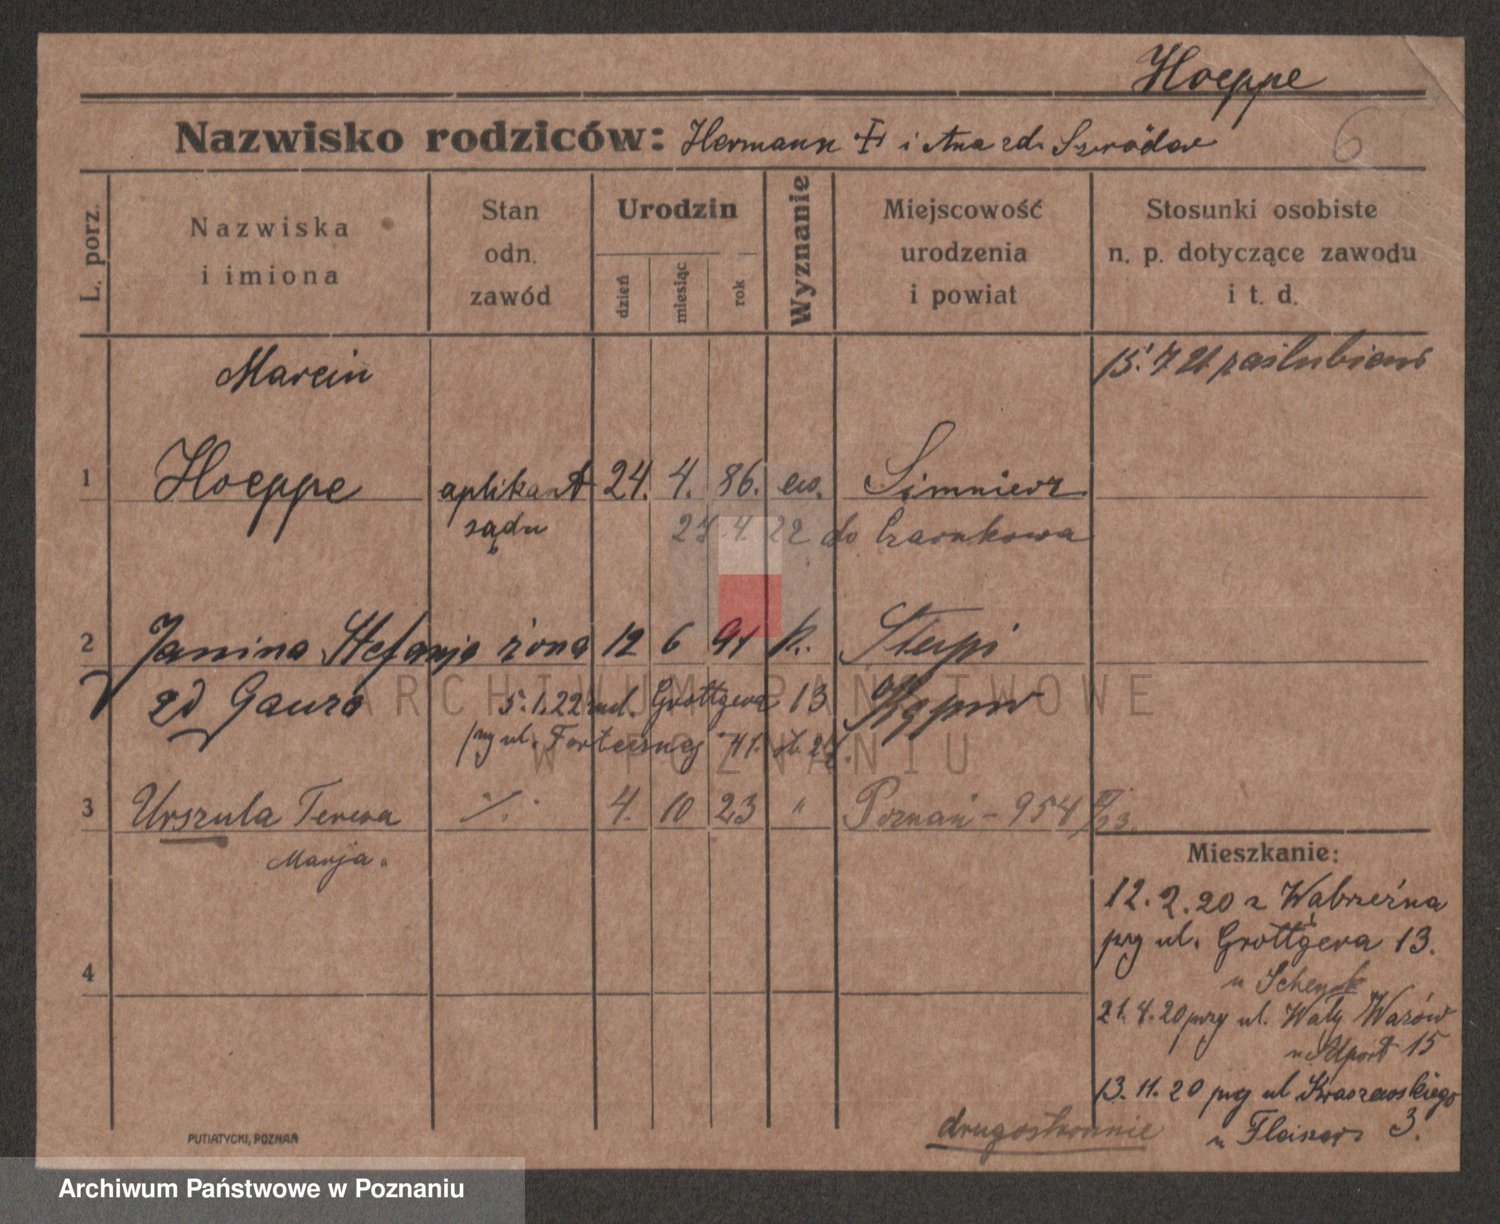 Hoeppe
Nazwisko rodziców: Hermann i Ana zd. Szröder
6
L. porz.
Nazwiska i imiona
Stan odn. zawód
Urodzin
dzień
miesiąc
rok
Wyznanie
Miejscowość urodzenia i powiat
Stosunki osobiste n. p. dotyczące zawodu i t. d.
Marcin
15.7 21 zaślubieni
1 Hoeppe aplikant 24. 4. 86. ew.
sądu 27.4.22 do Czarnkowa
2 Janina Stefanja żona 12 6 91 k. Słupi
zd Gauza 5.1.22 ul. Grottgera 13 Kępno
przy ul. Fortecznej 41.
3 Urszula Teresa ./. 4. 10 23 " Poznań - 954
Marja
4
Mieszkanie:
12.2.20 z Wąbrzeźna
przy ul. Grottgera 13.
u Schenk
21.4.20 przy ul. Wały Wazów
15
13.11.20 przy ul Kraszewskiego
u 3.
drugostronnie
PUTIATYCKI, POZNAŃ
ARCHIWUM PAŃSTWOWE
W POZNANIU
Archiwum Państwowe w Poznaniu